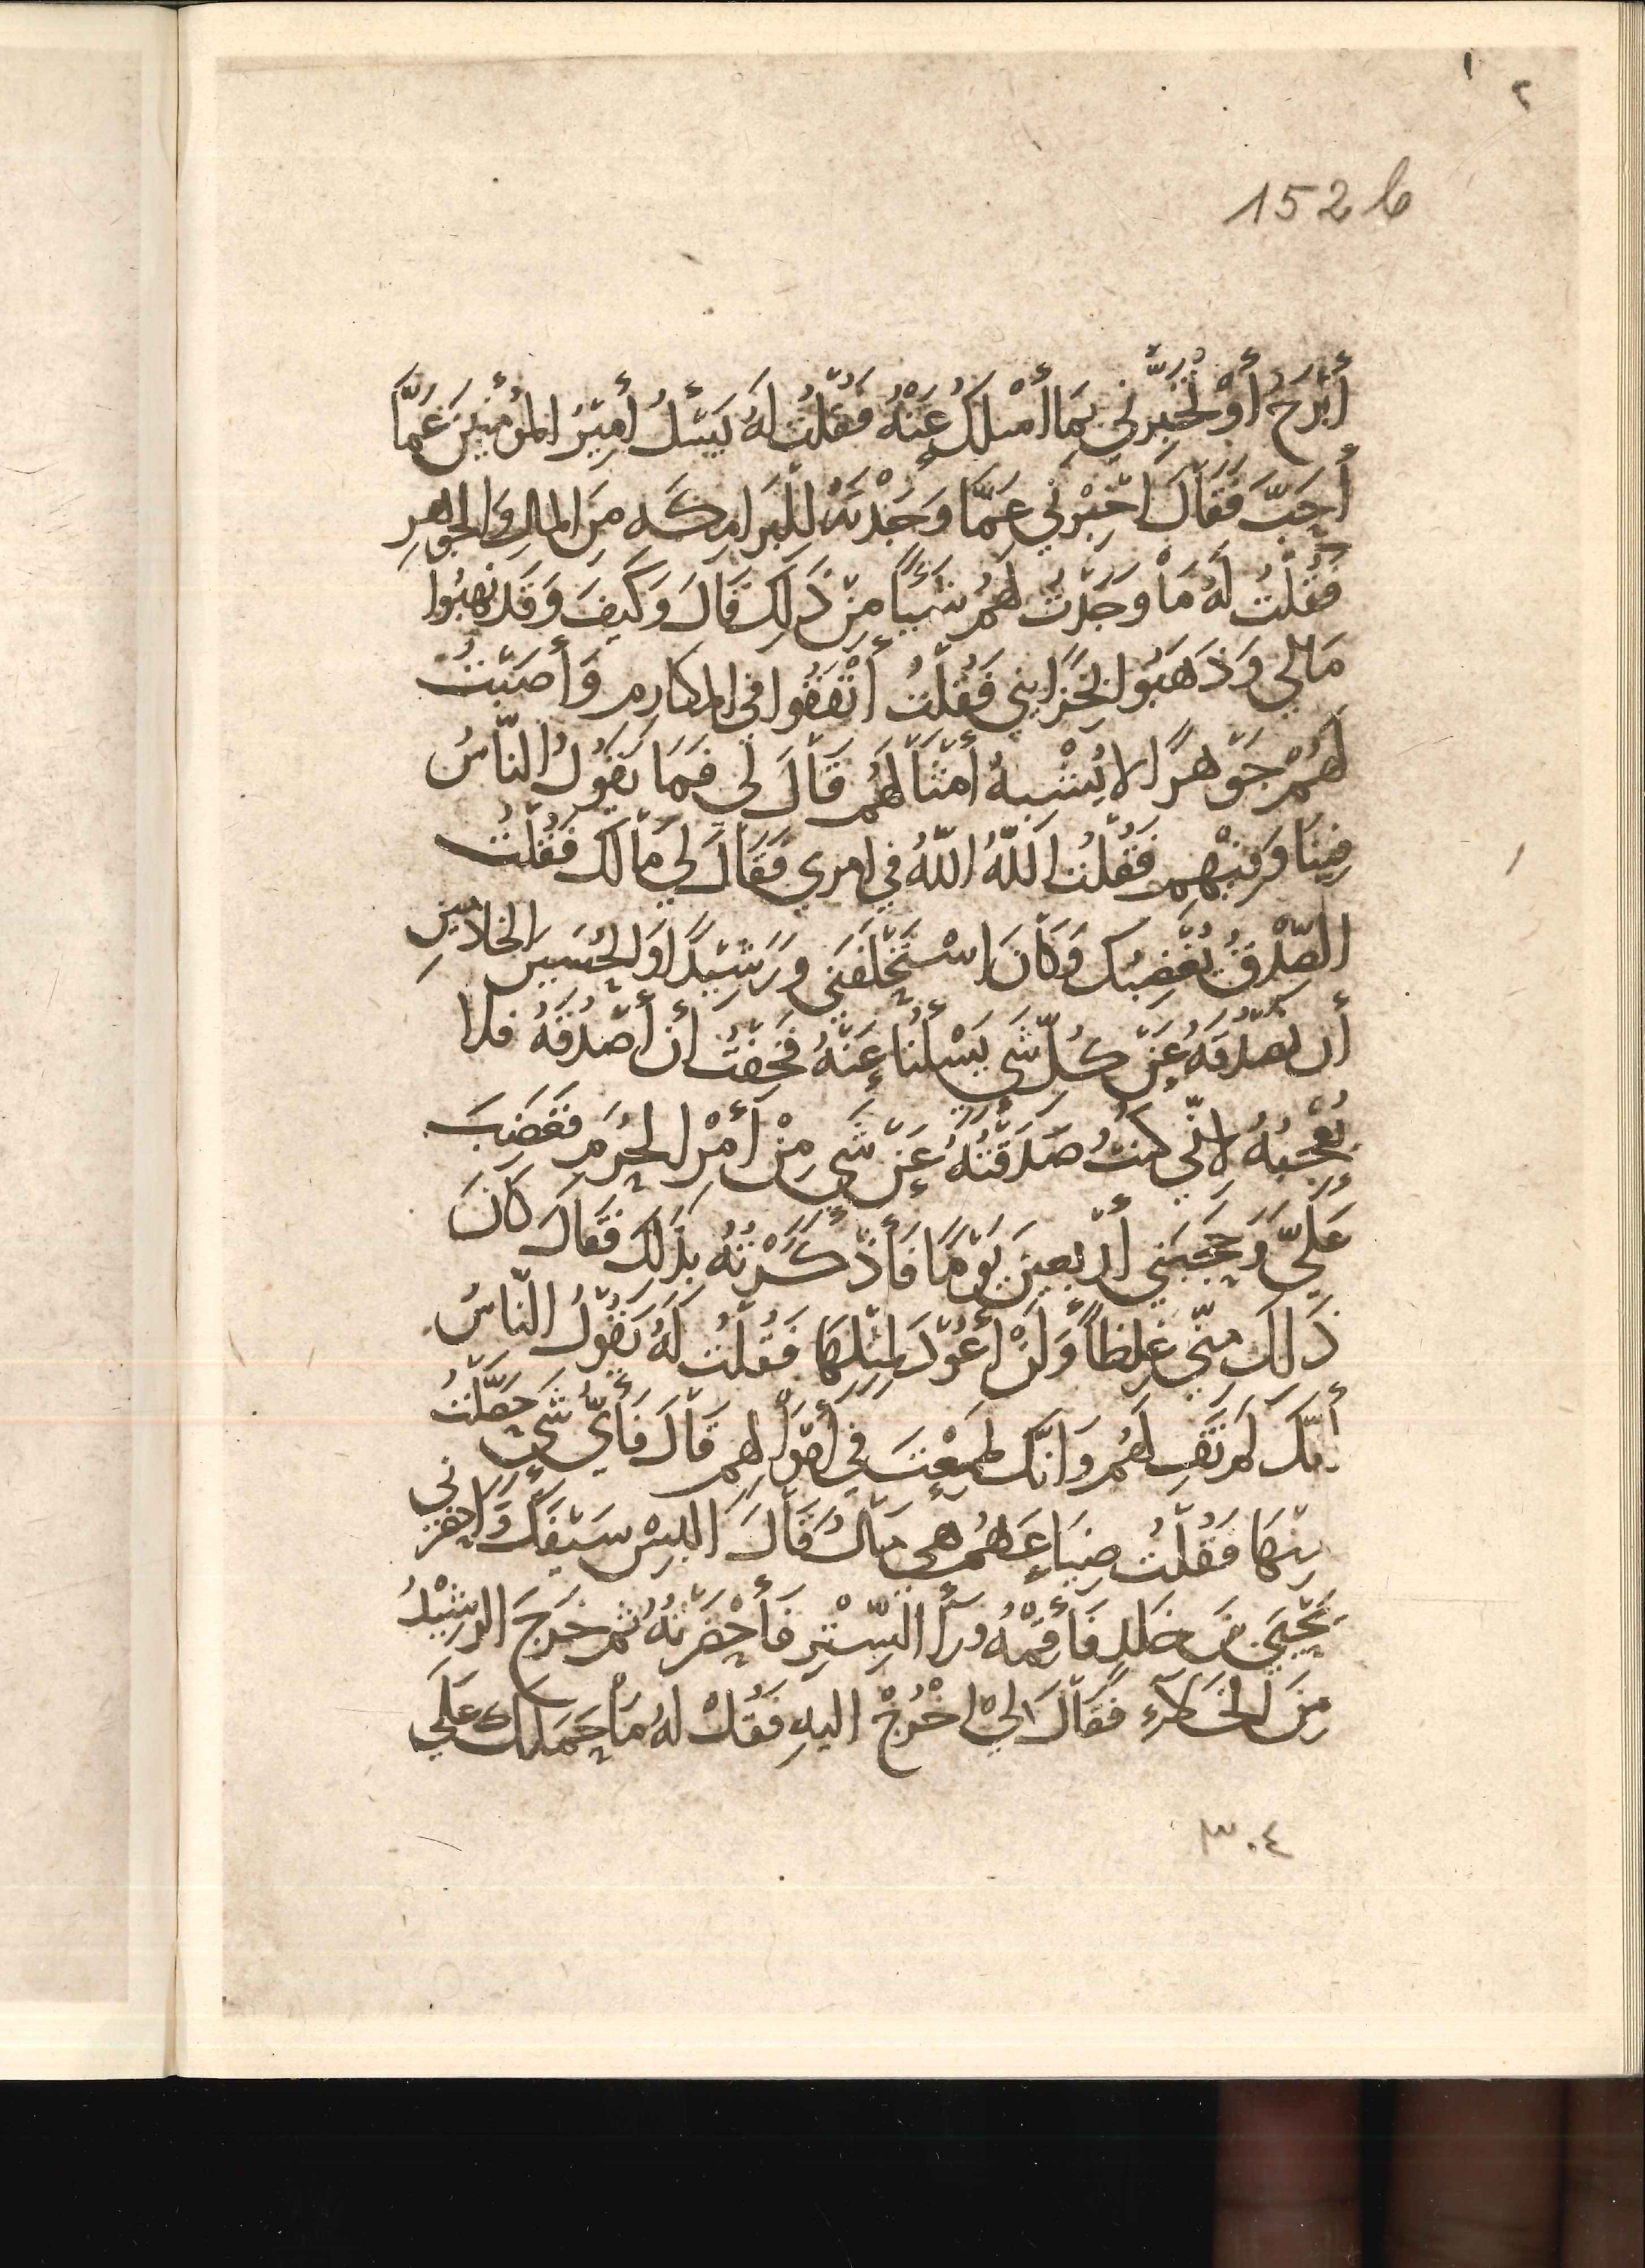 ١
٢
152 b
أَبْرَحُ أَوْ تُخْبِرَّنِي بِمَا أَسْلُكُ عَنْهُ فَقُلْتُ لَهُ يَسْئَلُ أَمِيْرُ المُؤمِنِينَ عَمَّا
أُحِبَّ فَقَالَ اخْبِرْنِي عَمَّا وَجَدْتَهُ لِلْبَرَامِكَه مِنَ المَالِ وَالجَوْهَرِ
فَقُلْتُ لَهُ مَا وَجَدْتُ لَهُمْ شَيْئًا مِنْ ذَلِكَ قَالَ وَكَيفَ وَقَد نَهَبُوا
مَالي وَذَهَبُوا بِخَزَايني فَقُلْتُ أَنْفَقُوا في المكَارِم وَأَصَبْتُ
لَهُمْ جَوْهَرًا لا يُشْبِهُ أَمْثَالَهُم قَالَ لي فَمَا يَقُولُ النَّاسُ
فِينَا وَفِيْهِم فَقُلْتُ اللهُ اللهُ في امري فَقَالَ لي مَالَك فَقُلْتُ
الصِّدْقُ يُغْضِبُك وَكَانَ اسْتَحْلَفَنِي وَرَشِيْدًا وَالحُسَين الخَادِمَيْنِ
أن نَصْدُقَهُ عَنْ كُلِّ شَي يَسْلُنَا عَنْهُ فَخِفْتُ أَن أَصْدُقَهُ فلا
يُعْجِبُهُ لِانِّي كُنْتُ صَدَقْتُهُ عَنْ شَيٍ مِنْ أَمْرِ الحُرَمِ فَغَضِبَ
عَلَيَّ وَحَجَبَنِي أَرْبَعِينَ يَوْمًا فَأَذْكَرْتُهُ بِذَلِكَ فَقَالَ كَانَ
ذَلِكَ مِنِّي غِلظاً وَلَنْ أَعُوْدَ لِمِثْلِهَا فَقُلْتُ لَهُ يَقُوْلُ النَّاسُ
أَنَّكَ لَم تَفِ لَهُم وَانَّكَ طَمِعْتَ في أَمْوَالِهِم قَالَ فَأَيّ شَيٍ حَصَّلْتُ
مِنْهَا فَقُلْتُ ضِيَاعَهُم هي مَالٌ قَالَ البسْ سَيْفَكَ وَاحْضِرْني
يَحْيَي بْنَ خَالِد فَأَقِمْهُ وَرَأ السِّتْرِ فَأَحْضَرْتُهُ ثُم خَرَجَ الرَشِيْدُ
مِنَ الخَلَآءِ فَقَالَ لي اخْرُجْ اليهِ فَقُلْ لَهُ مَا حَمَلَكَ عَلَي
٣٠٤